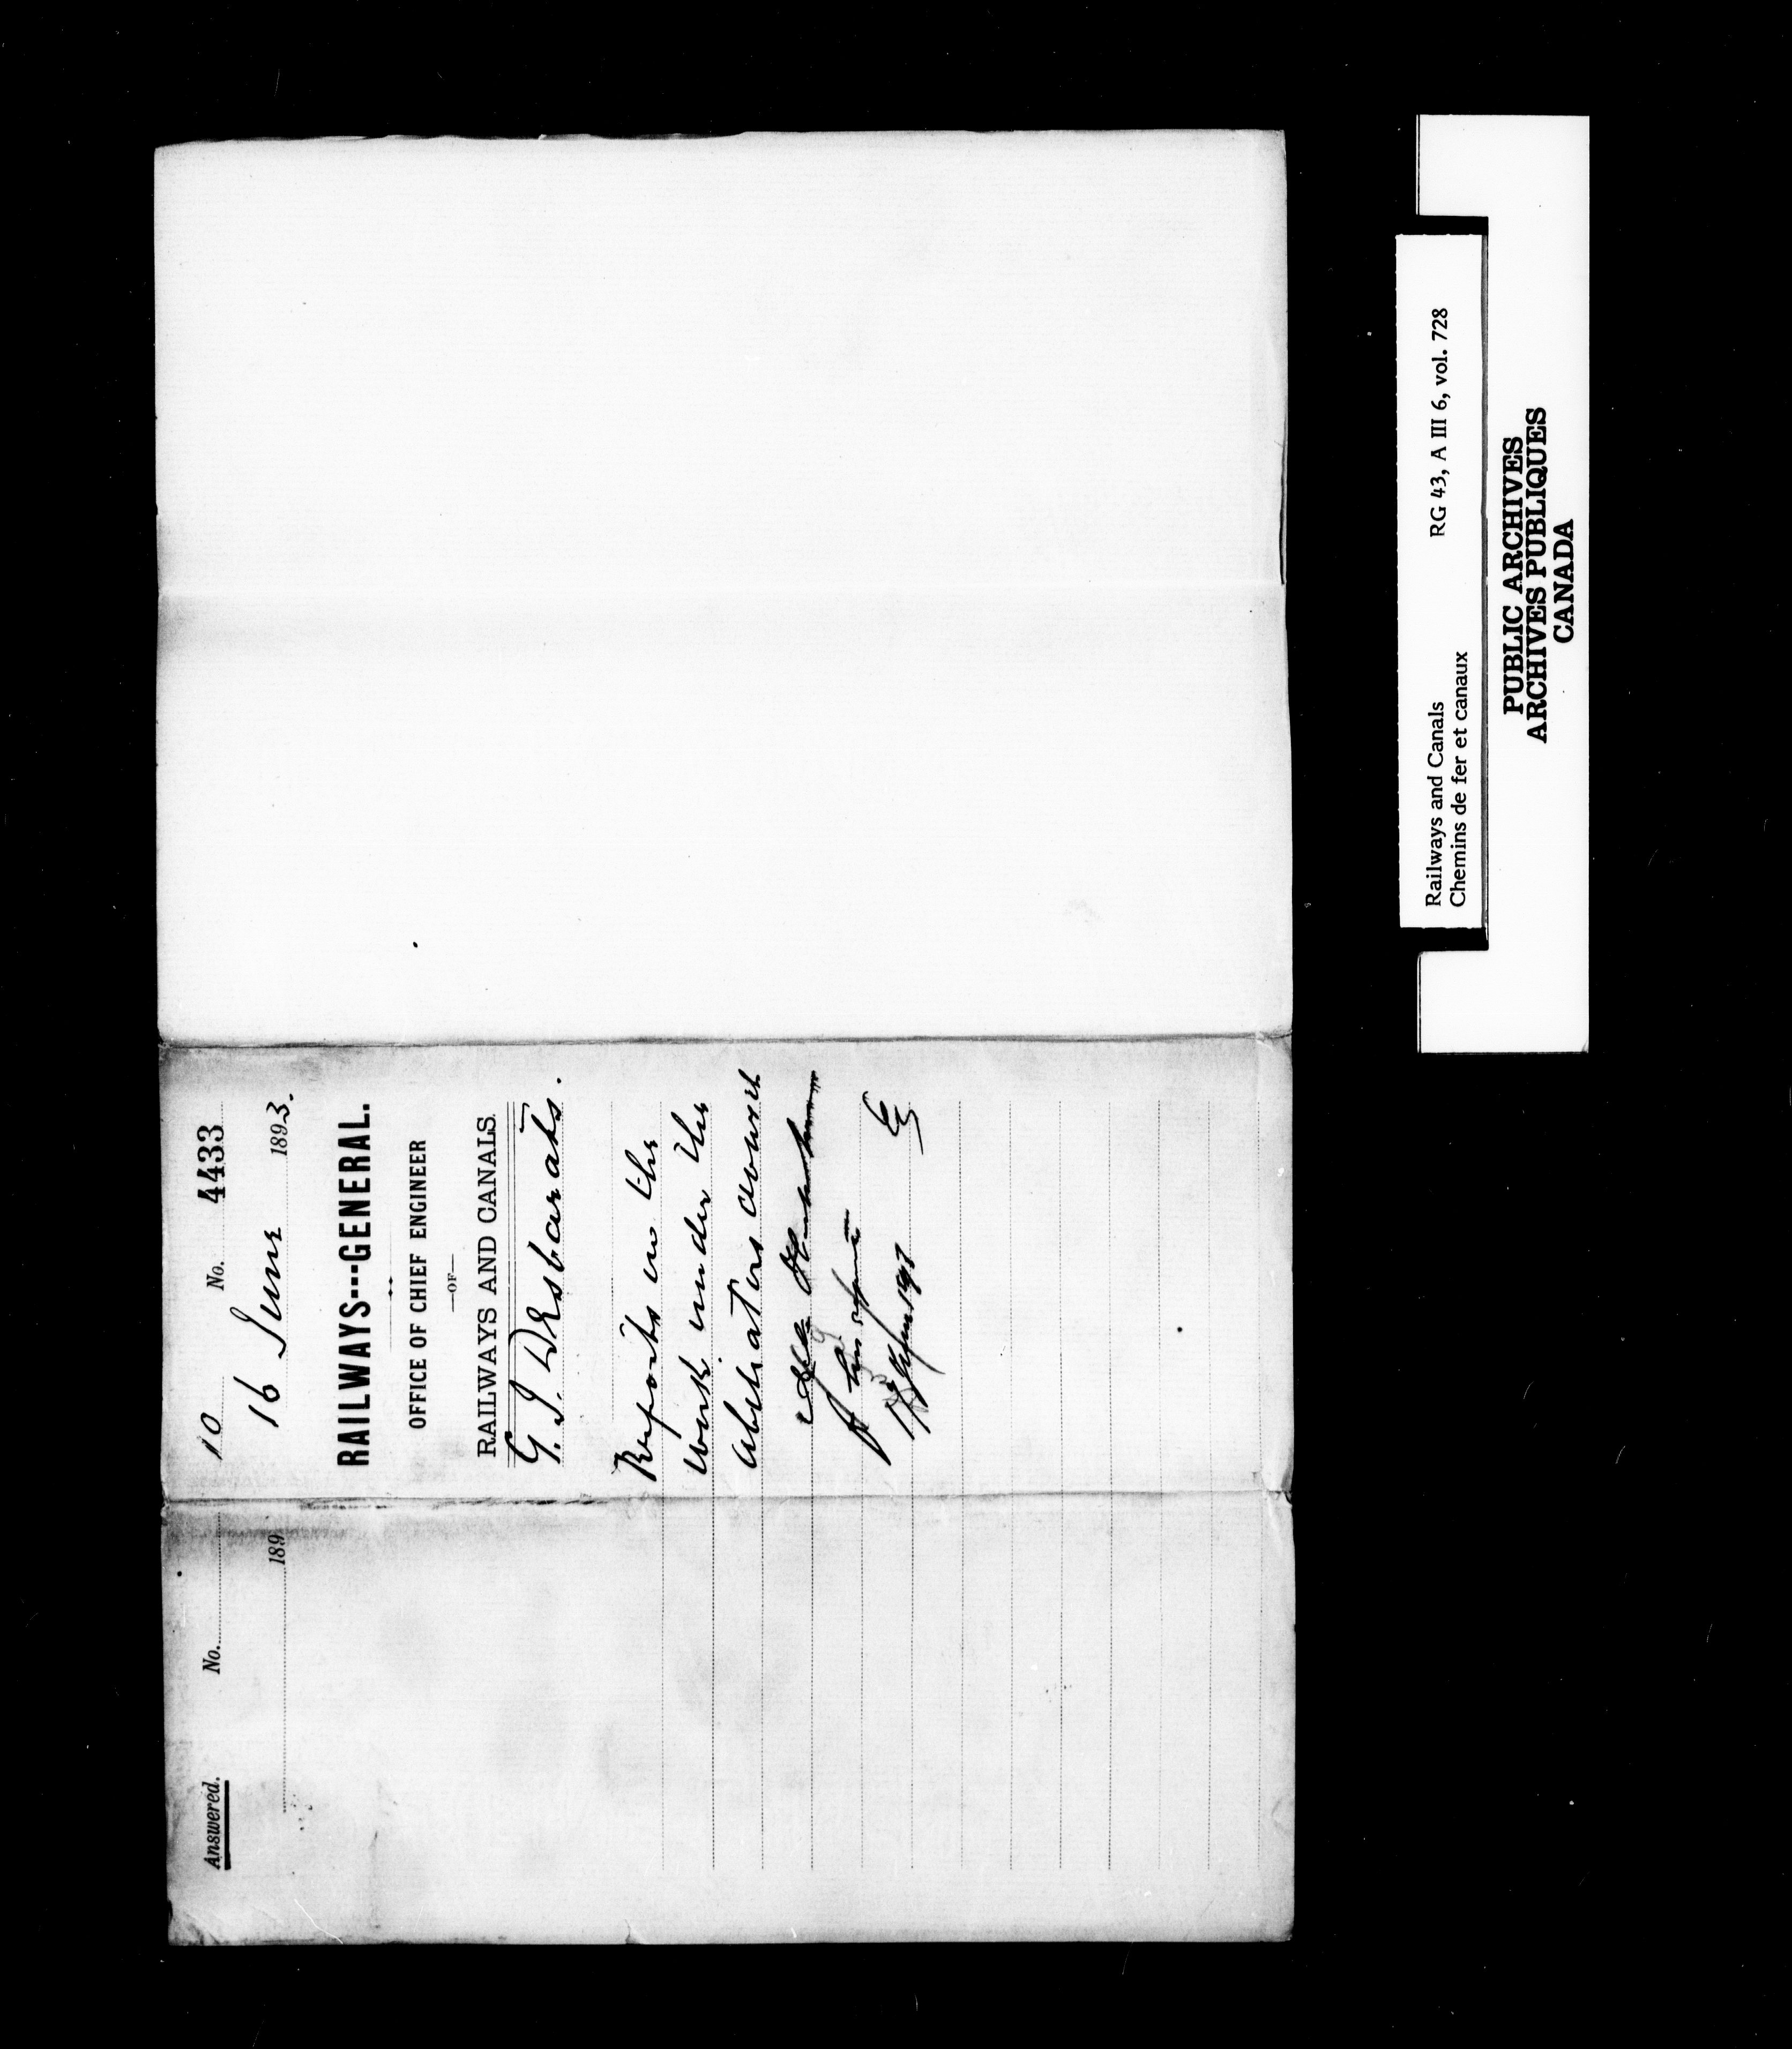 10 No. 4433
16 June 1893.
RAILWAYS---GENERAL.
OFFICE OF CHIEF ENGINEER
—OF—
RAILWAYS AND CANALS.
G. J. Desbarats.
Reports on the
work under the
arbitrators award
Answered. No.
189
Railways and Canals RG 43, A III 6, vol. 728
Chemins de fer et canaux
PUBLIC ARCHIVES
ARCHIVES PUBLIQUES
CANADA